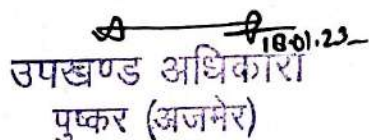 18.01.23
उपखण्ड अधिकारी
पुष्कर (अजमेर)